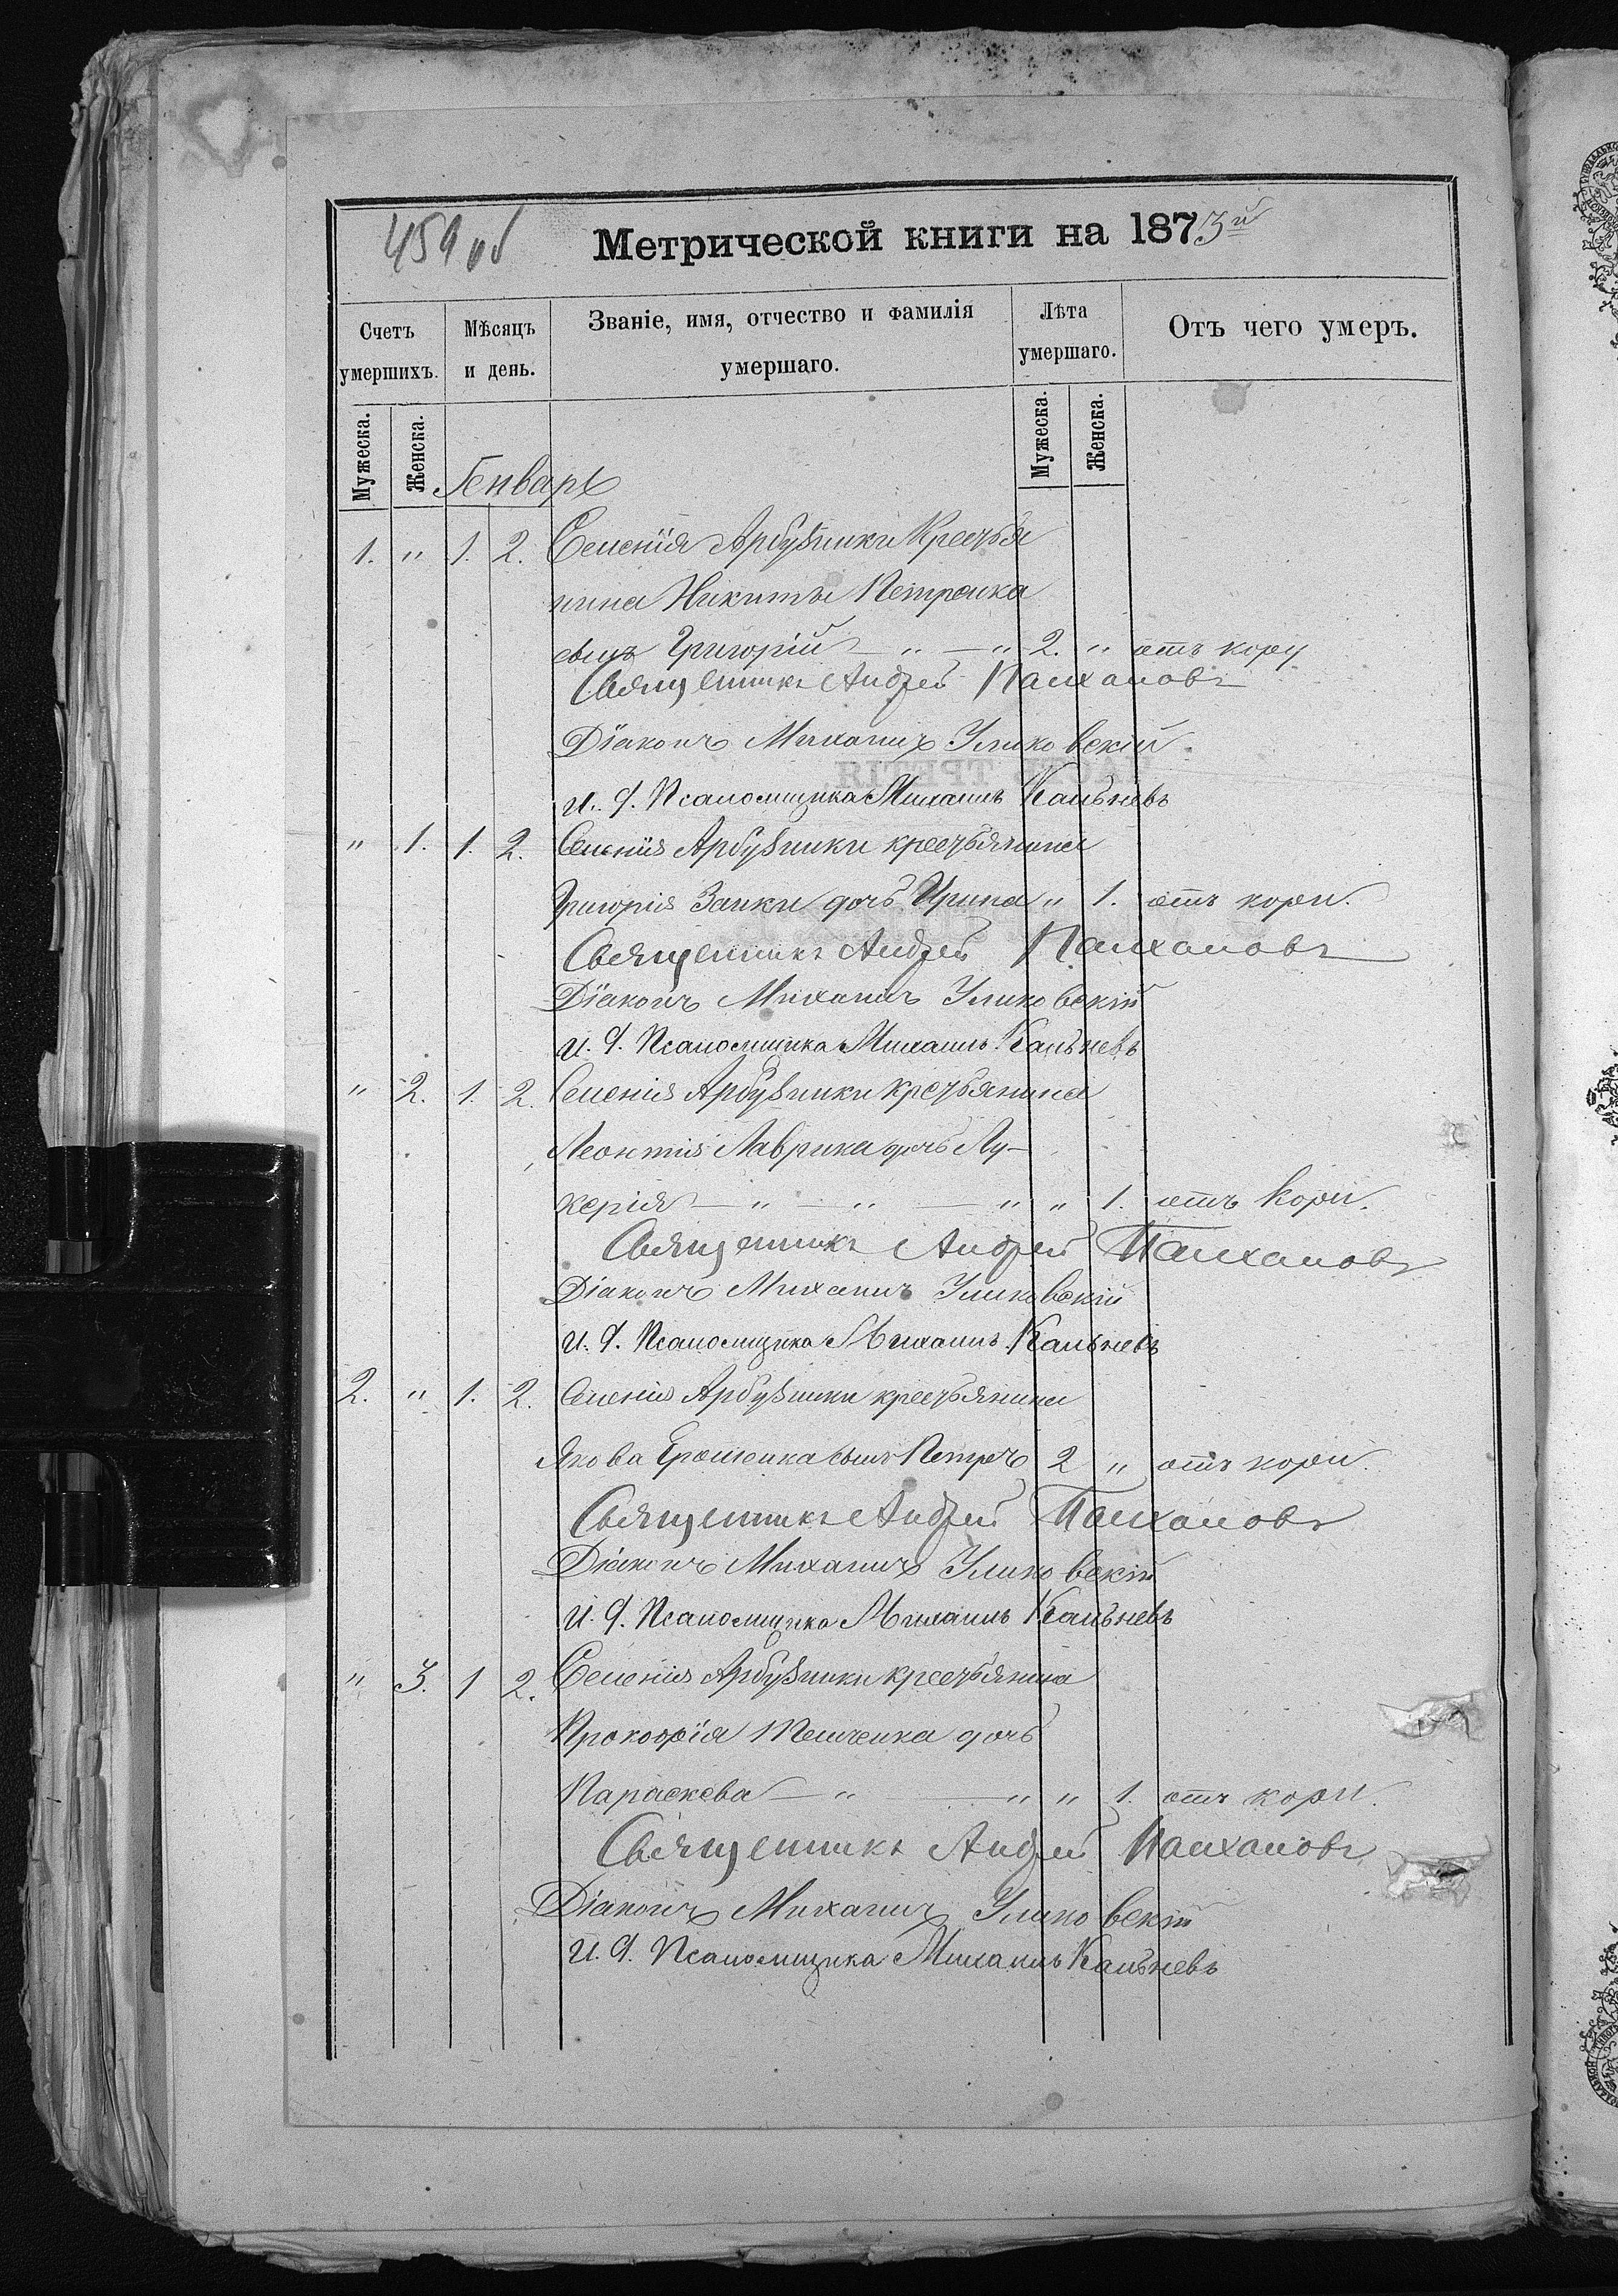 459 об
Метрической книги на 1873й
Счетъ умершихъ.
Мѣсяцъ и день.
Званіе, имя, отчество и фамилія умершаго.
Лѣта умершаго.
Отъ чего умеръ.
Мужеска.
Женска.
Мужеска.
Женска.
Генварь
1. " 1. 2. Селенія Арбузинки Кресть̀я
нина Никиты Петренка
сынъ Григорій — " — " 2. " отъ кору
Священникъ Андрей
Діаконъ Михаилъ
и. д. Псаломщика Михаилъ Кальневъ
" 1. 1. 2. Селенія Арбузинки крестьянина
Григорія Заики дочь Ирина " 1. отъ кори.
Священникъ Андрей
Діаконъ Михаилъ
и. д. Псаломщика Михаилъ Кальневъ
" 2. 1. 2. Селенія Арбузинки крестьянина
Леонтія Лаврика дочь Лу-
керія — " — " — " " 1. отъ кори.
Священникъ Андрей
Діаконъ Михаилъ
и. д. Псаломщика Михаилъ Кальневъ
2. " 1. 2. Селенія Арбузинки крестьянина
Якова сынъ Петръ 2 " отъ кори.
Священникъ Андрей
Діаконъ Михаилъ
и. д. Псаломщика Михаилъ Кальневъ
" 3. 1 2. Селенія Арбузинки крестьянина
Прокофія дочь
Параскева — " — " " 1. отъ кори.
Священникъ Андрей
Діаконъ Михаилъ
и. д. Псаломщика Михаилъ Кальневъ